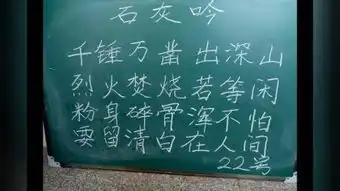 石灰吟
千锤万凿出深山
烈火焚烧若等闲
粉身碎骨浑不怕
要留清白在人间
22号